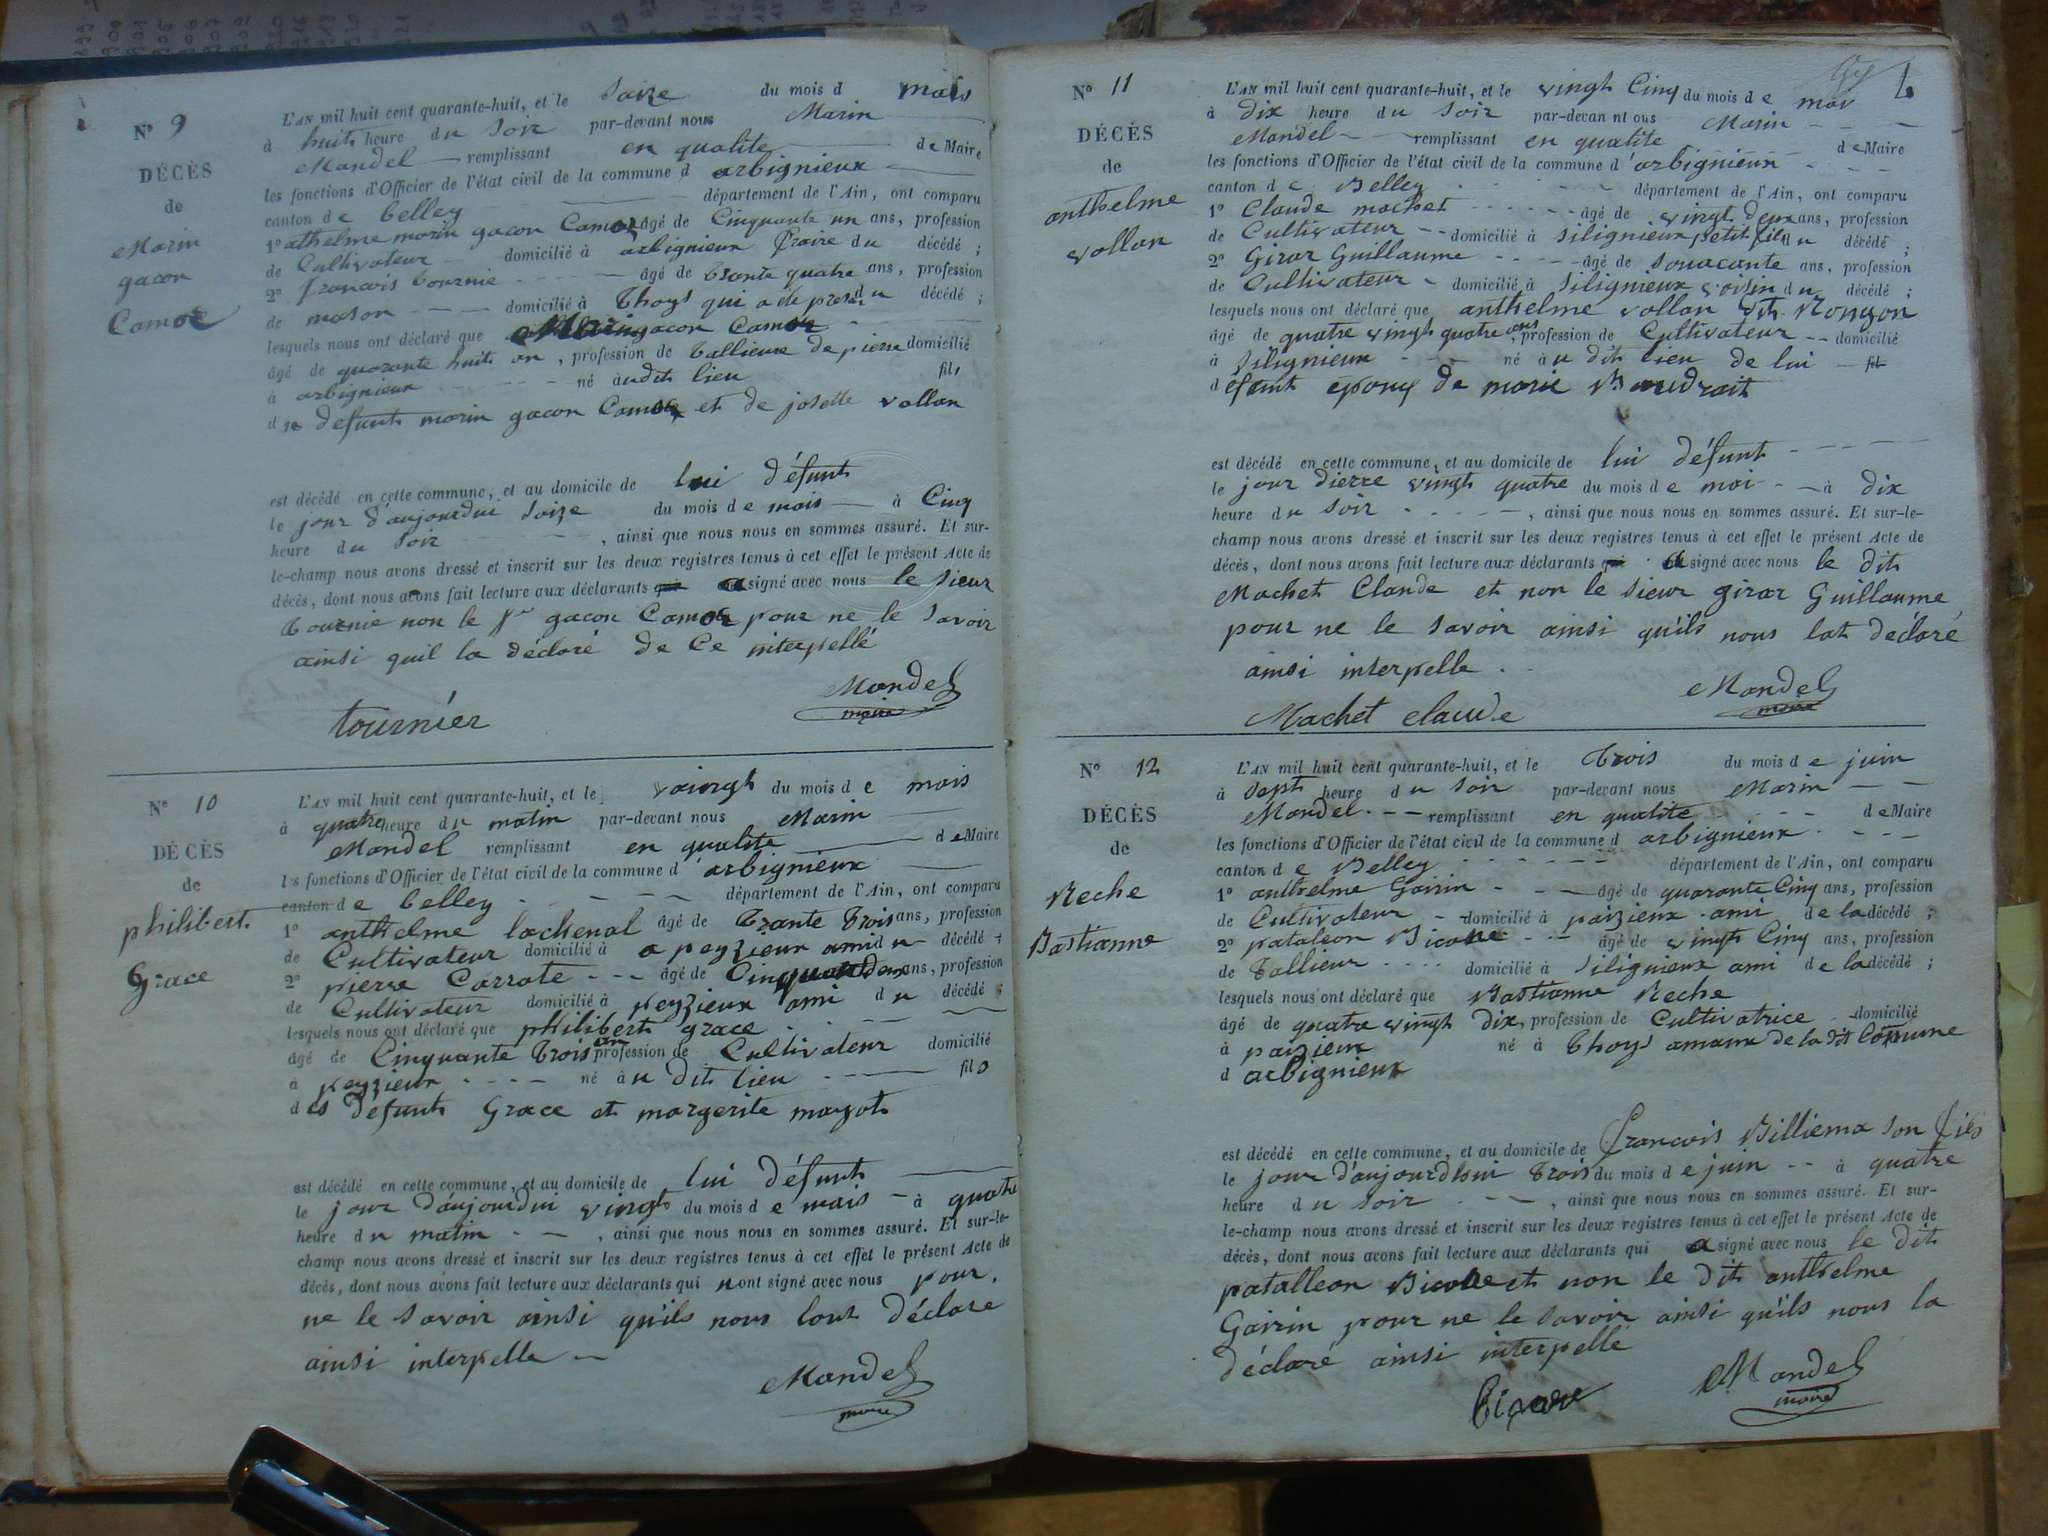 N° 9
DÉCÈS
de
Marin
gacon
Camoz
L'AN mil huit cent quarante-huit, et le Saize du mois d mais
à huit heure du Soir par-devant nous Marin
Mandel remplissant en qualite de Maire
les fonctions d'Officier de l'état civil de la commune d arbignieux
canton de belley département de l'Ain, ont comparu
1° athelme marin gacon Camoz âgé de Cinquante un ans, profession
de Cultivateur domicilié à arbignieux fraire du décédé ;
2° françois tournie âgé de trante quatre ans, profession
de mason domicilié à Thoys qui a ete presen du décédé ;
lesquels nous ont déclaré que Marin gacon Camoz
âgé de quarante huit an, profession de tallieur de pierre domicilié
à arbignieux né àu dit lieu fils
de defunts marin gacon Camoz et de josette vallan
est décédé en cette commune, et au domicile de lui défunt
le jour d'aujourdui Saize du mois de mais à Cinq
heure du soir , ainsi que nous nous en sommes assuré. Et sur-
le-champ nous avons dressé et inscrit sur les deux registres tenus à cet effet le présent Acte de
décès, dont nous avons fait lecture aux déclarants qui a signé avec nous le sieur
tournie non le sr gacon Camoz pour ne le savoir
ainsi quil la déclaré de Ce interpellé
Mandel
maire
tournier
N° 10
DÉCÈS
de
philibert
Grace
L'AN mil huit cent quarante-huit, et le vaingt du mois de mais
à quatre heure du matin par-devant nous Marin
Mandel remplissant en qualite de Maire
les fonctions d'Officier de l'état civil de la commune d'arbignieux
canton de belley département de l'Ain, ont comparu
1° anthelme lachenal âgé de trante trois ans, profession
de Cultivateur domicilié à a peyzieux ami du décédé ;
2° pierre Carrote âgé de Cinquantdeux ans, profession
de Cultivateur domicilié à peyzieux ami du décédé ;
lesquels nous ont déclaré que philibert grace
âgé de Cinquante trois an profession de Cultivateur domicilié
à peyzieux né àu dit lieu fils
des défunts Grace et margerite mayot
est décédé en cette commune, et au domicile de lui défunt
le jour d'aujourdui vingt du mois de mais à quatre
heure du matin , ainsi que nous nous en sommes assuré. Et sur-le-
champ nous avons dressé et inscrit sur les deux registres tenus à cet effet le présent Acte de
décès, dont nous avons fait lecture aux déclarants qui nont signé avec nous pour
ne le savoir ainsi qu'ils nous lont déclare
ainsi interpelle
Mandel
maire
N° 11
DÉCÈS
de
anthelme
vollan
L'AN mil huit cent quarante-huit, et le vingt Cinq du mois de mai
à dix heure du soir par-devant nous Marin
Mandel remplissant en qualite de Maire
les fonctions d'Officier de l'état civil de la commune d'arbignieux
canton de Belley département de l'Ain, ont comparu
1° Claude machet âgé de vingt deux ans, profession
de Cultivateur domicilié à silignieux petit fils du décédé ;
2° Girar Guillaume âgé de souacante ans, profession
de Cultivateur domicilié à silignieux voisin du décédé ;
lesquels nous ont déclaré que anthelme vollan dit Rongon
âgé de quatre vingt quatre ans, profession de Cultivateur domicilié
à Silignieux né àu dit lieu de lui fils
défunt epoux de marie Baudrait
est décédé en cette commune, et au domicile de lui défunt
le jour dierre vingt quatre du mois de mai à dix
heure du soir , ainsi que nous nous en sommes assuré. Et sur-le-
champ nous avons dressé et inscrit sur les deux registres tenus à cet effet le présent Acte de
décès, dont nous avons fait lecture aux déclarants qui a signé avec nous le dit
Machet Claude et non le sieur girar Guillaume
pour ne le savoir ainsi qu'ils nous lat déclaré
ainsi interpelle .
Mandel
maire
Machet claude
N° 12
DÉCÈS
de
Reche
Bastianne
L'AN mil huit cent quarante-huit, et le trois du mois de juin
à sept heure du soir par-devant nous Marin
Mandel remplissant en qualite de Maire
les fonctions d'Officier de l'état civil de la commune d arbignieux
canton de Belley département de l'Ain, ont comparu
1° anthelme Goirin âgé de quarante Cinq ans, profession
de Cultivateur domicilié à paizieux ami de la décédé ;
2° pataleon Bicone âgé de vingt Cinq ans, profession
de tallieur domicilié à Silignieux ami de la décédé ;
lesquels nous ont déclaré que Bastianne Reche
âgé de quatre vingt dix, profession de Cultivatrice domicilié
à paizieux né à Thoys amaux de la dit Comune
d arbignieux
est décédé en cette commune, et au domicile de françois Billiema son fils
le jour d'aujourdhui trois du mois de juin à quatre
heure du soir , ainsi que nous nous en sommes assuré. Et sur-
le-champ nous avons dressé et inscrit sur les deux registres tenus à cet effet le présent Acte de
décès, dont nous avons fait lecture aux déclarants qui a signé avec nous le dit
patalleon Bicone et non le dit anthelme
Goirin pour ne le savoir ainsi qu'ils nous la
déclaré ainsi interpellé
Mandel
maire